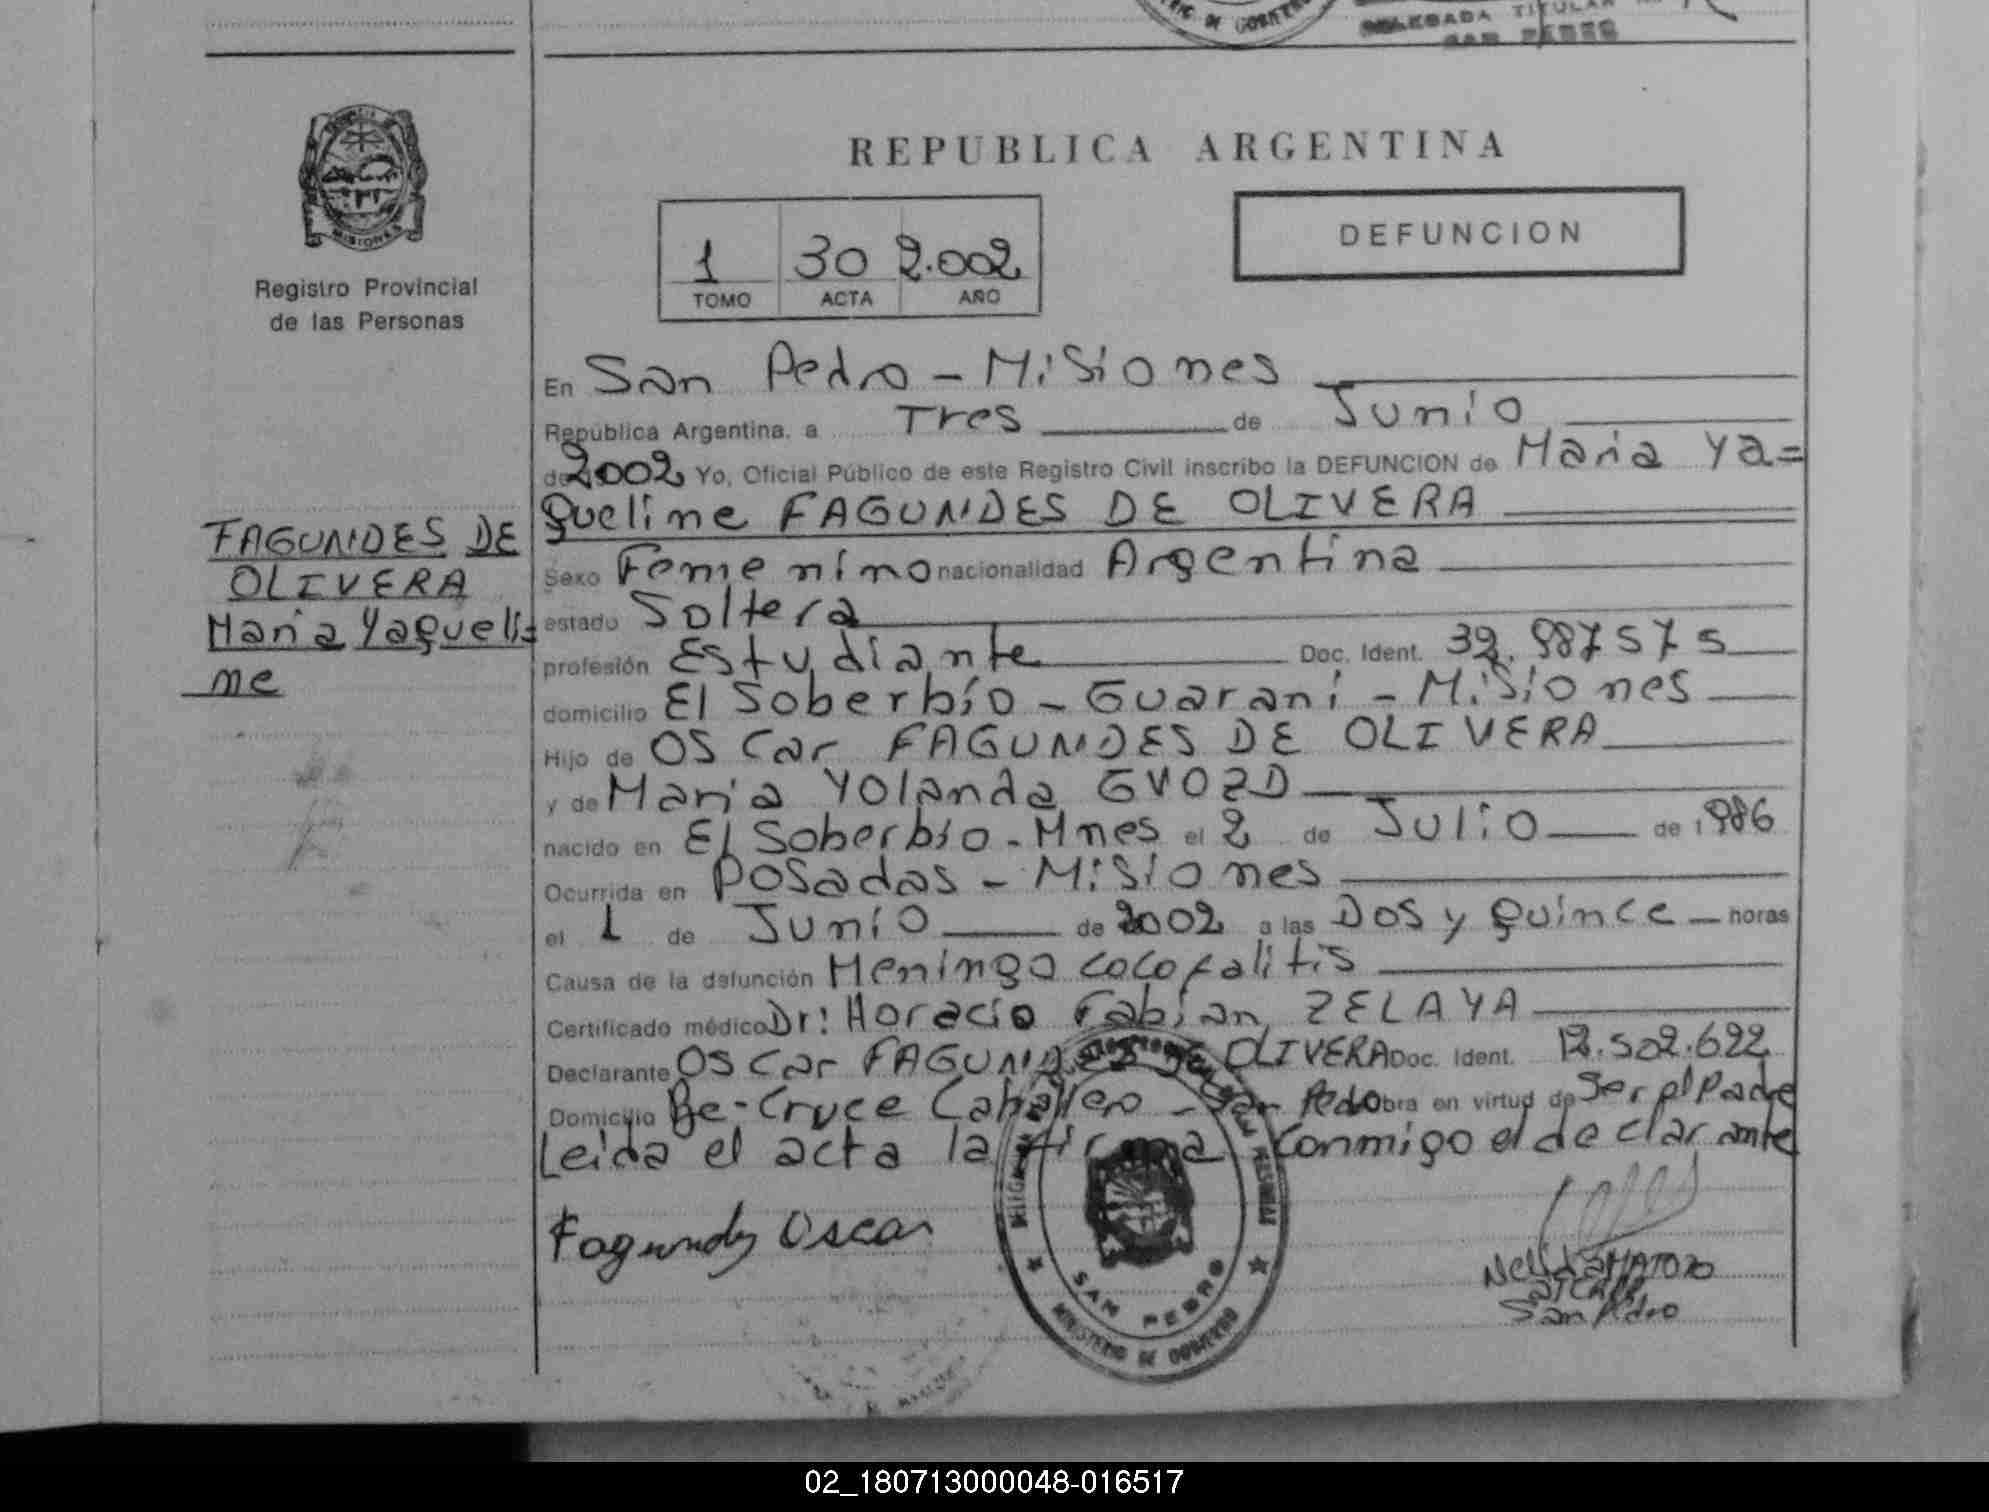 DE GOBIERNO
DELEGADA TITULAR
SAN PEDRO
MISIONES
Registro Provincial
de las Personas
REPUBLICA ARGENTINA
1 30 2.002
TOMO ACTA AÑO
DEFUNCION
En San Pedro - Misiones
República Argentina, a Tres de Junio
de 2002 Yo, Oficial Público de este Registro Civil inscribo la DEFUNCION de Maria Ya=
queline FAGUNDES DE OLIVERA
FAGUNDES DE
OLIVERA
Maria Yaqueli=
ne
Sexo Femenino nacionalidad Argentina
estado Soltera
profesión Estudiante Doc. Ident. 32.987575
domicilio El Soberbío - Guaraní - Misiones
Hijo de Oscar FAGUNDES DE OLIVERA
y de Maria Yolanda GVOZD
nacido en El Soberbio - Mnes el 2 de Julio de 1986
Ocurrida en Posadas - Misiones
el 1 de Junio de 2002 a las Dos y quince horas
Causa de la defunción
Certificado médico Dr: Horacio Fabian ZELAYA
Declarante Oscar FAGUNDES DE OLIVERA Doc. Ident. 12.502.622
Domicilio Be-Cruce Caballero - San Pedro obra en virtud de Ser el Padre
Leida el acta la firma conmigo el declarante
Fagundes Oscar
SAN PEDRO
MINISTERIO DE GOBIERNO
Nelida MATOZO
San Pedro
02_180713000048-016517